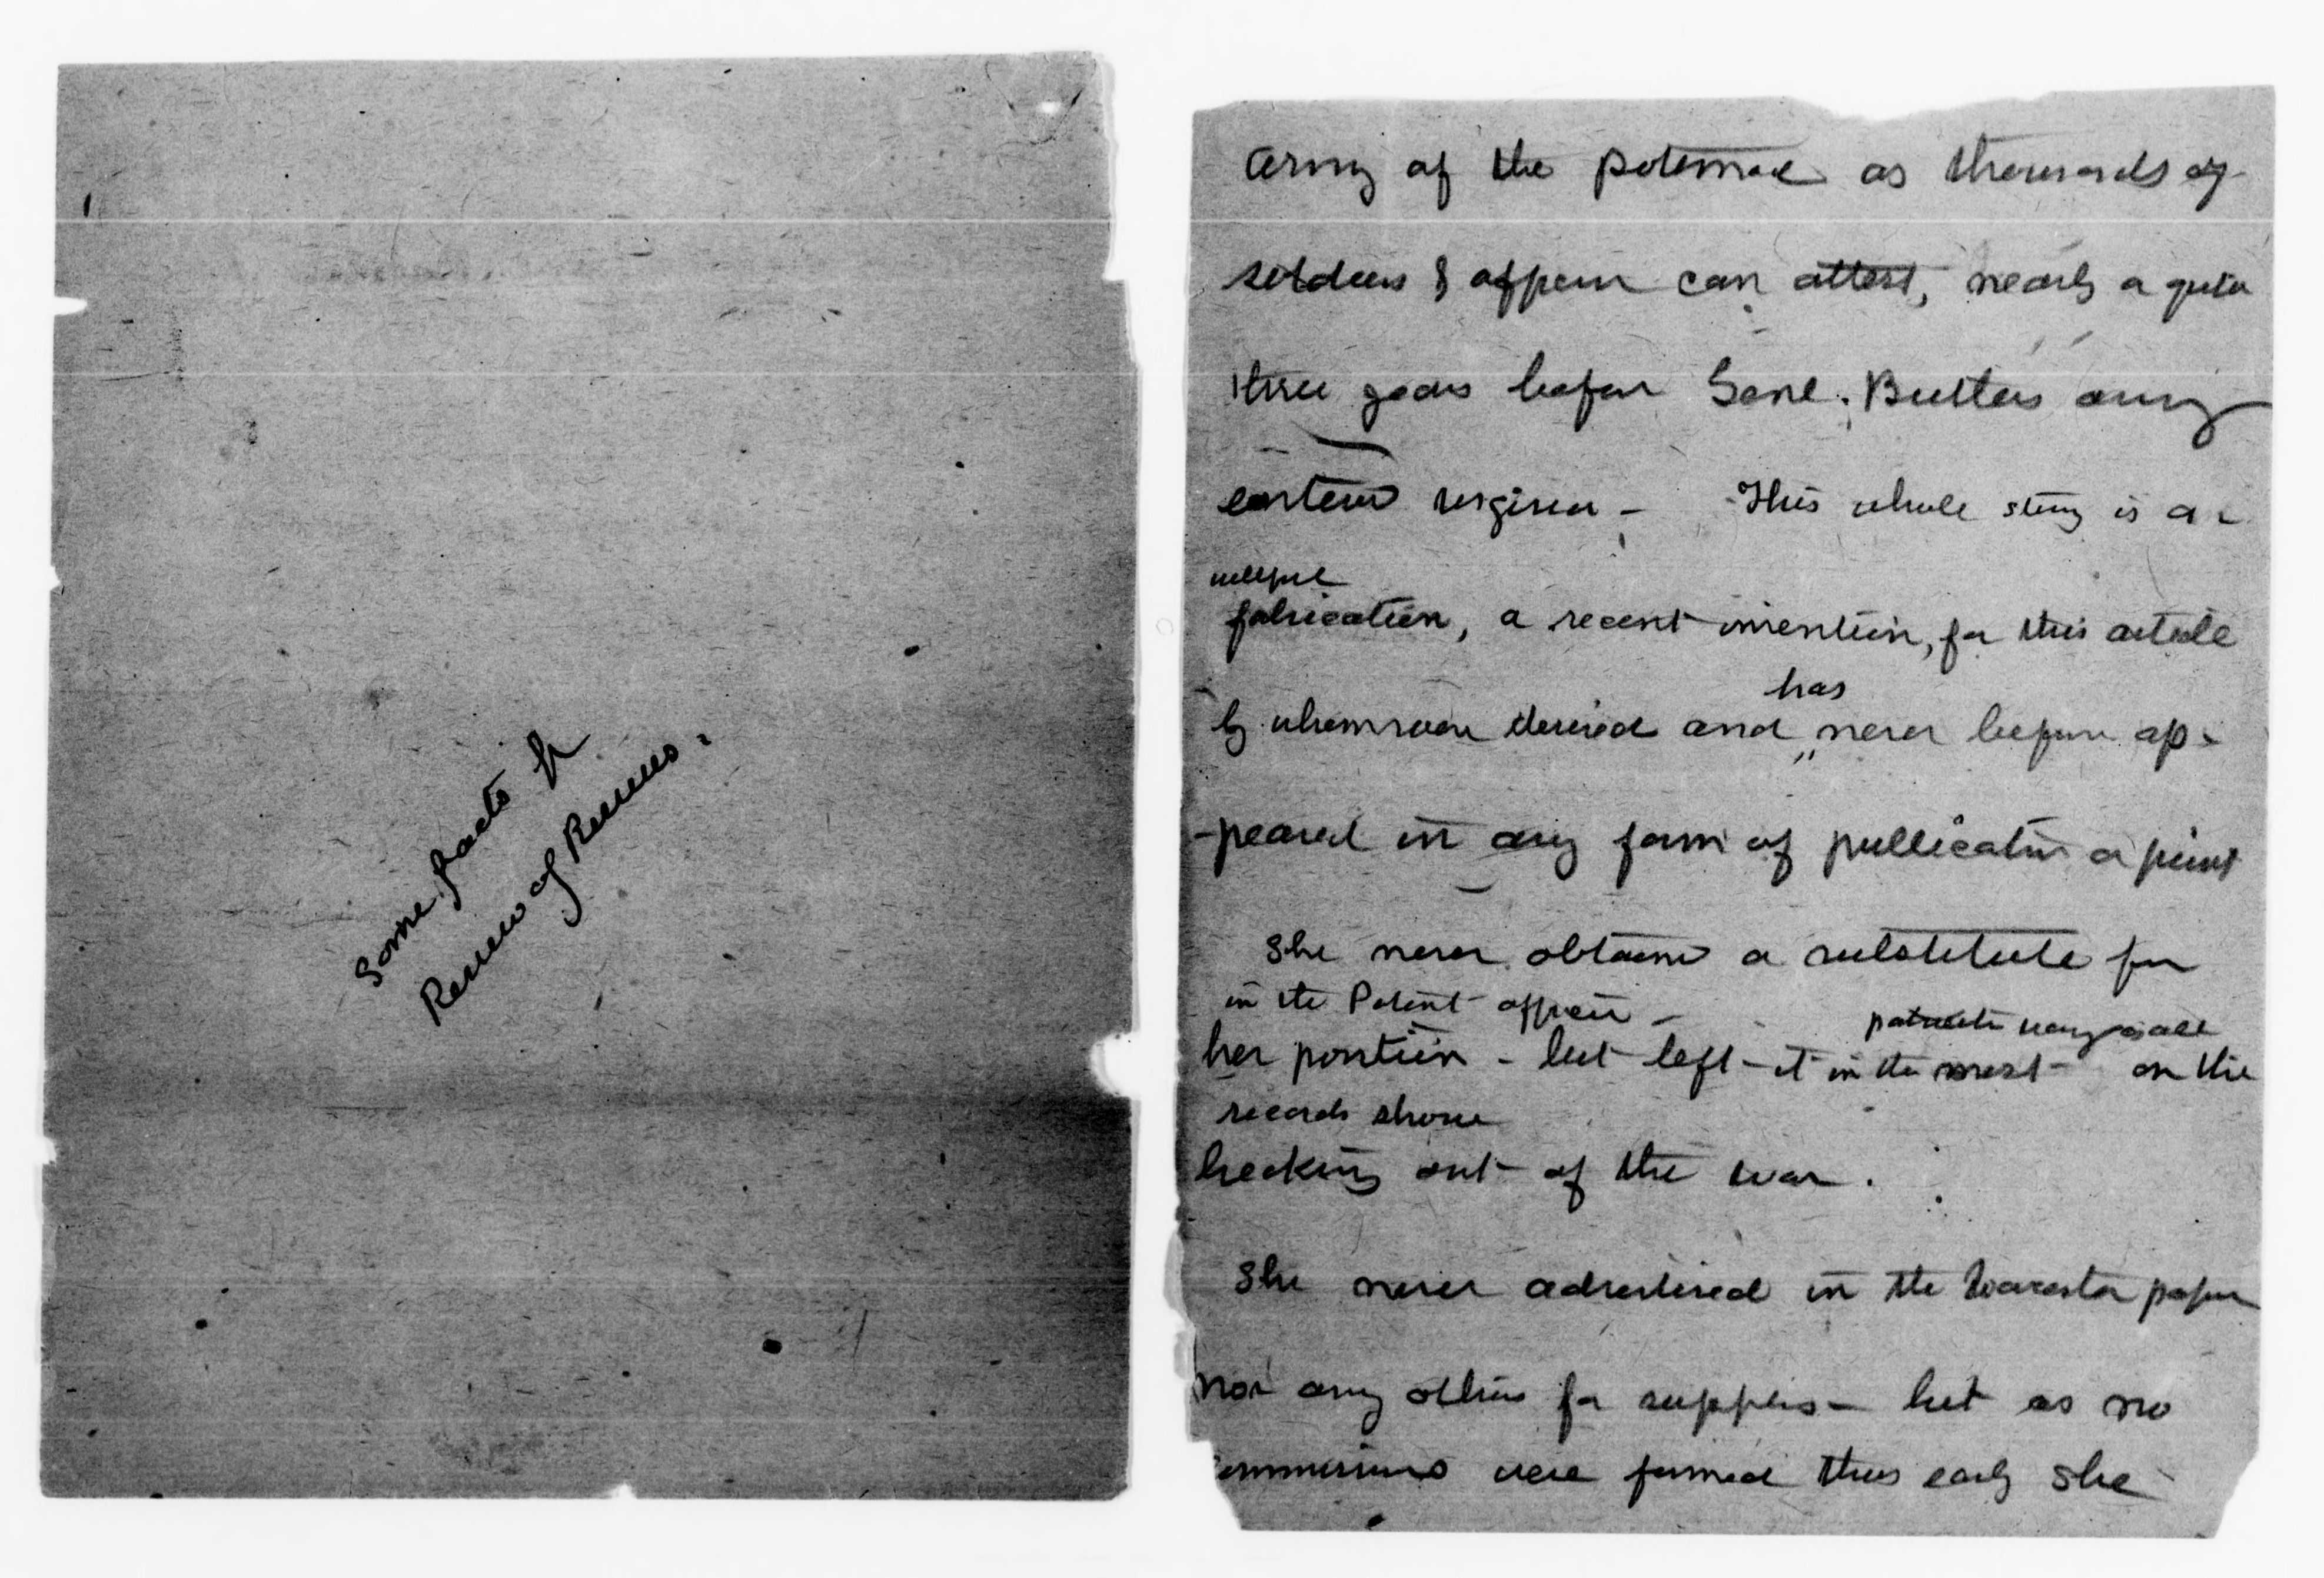 Some facts fr
Review of Reviews.
Army of the Potomac as thousands of
soldiers & officers can attest, nearly
three years before Genl. Butlers army
eastern virginia - This whole story is a
willful
fabrication, a recent invention, for this article
by whomsoever devised and never before ap-
has
-peared in any form of publication or print
She never obtained a substitute for
in the Patent office -
her position - but left it in the most on the
patriotic way
records show
breaking out of the war.
She never advertised in the Worcester papers
nor any others for supplies - but as no
commissions were formed thus early she